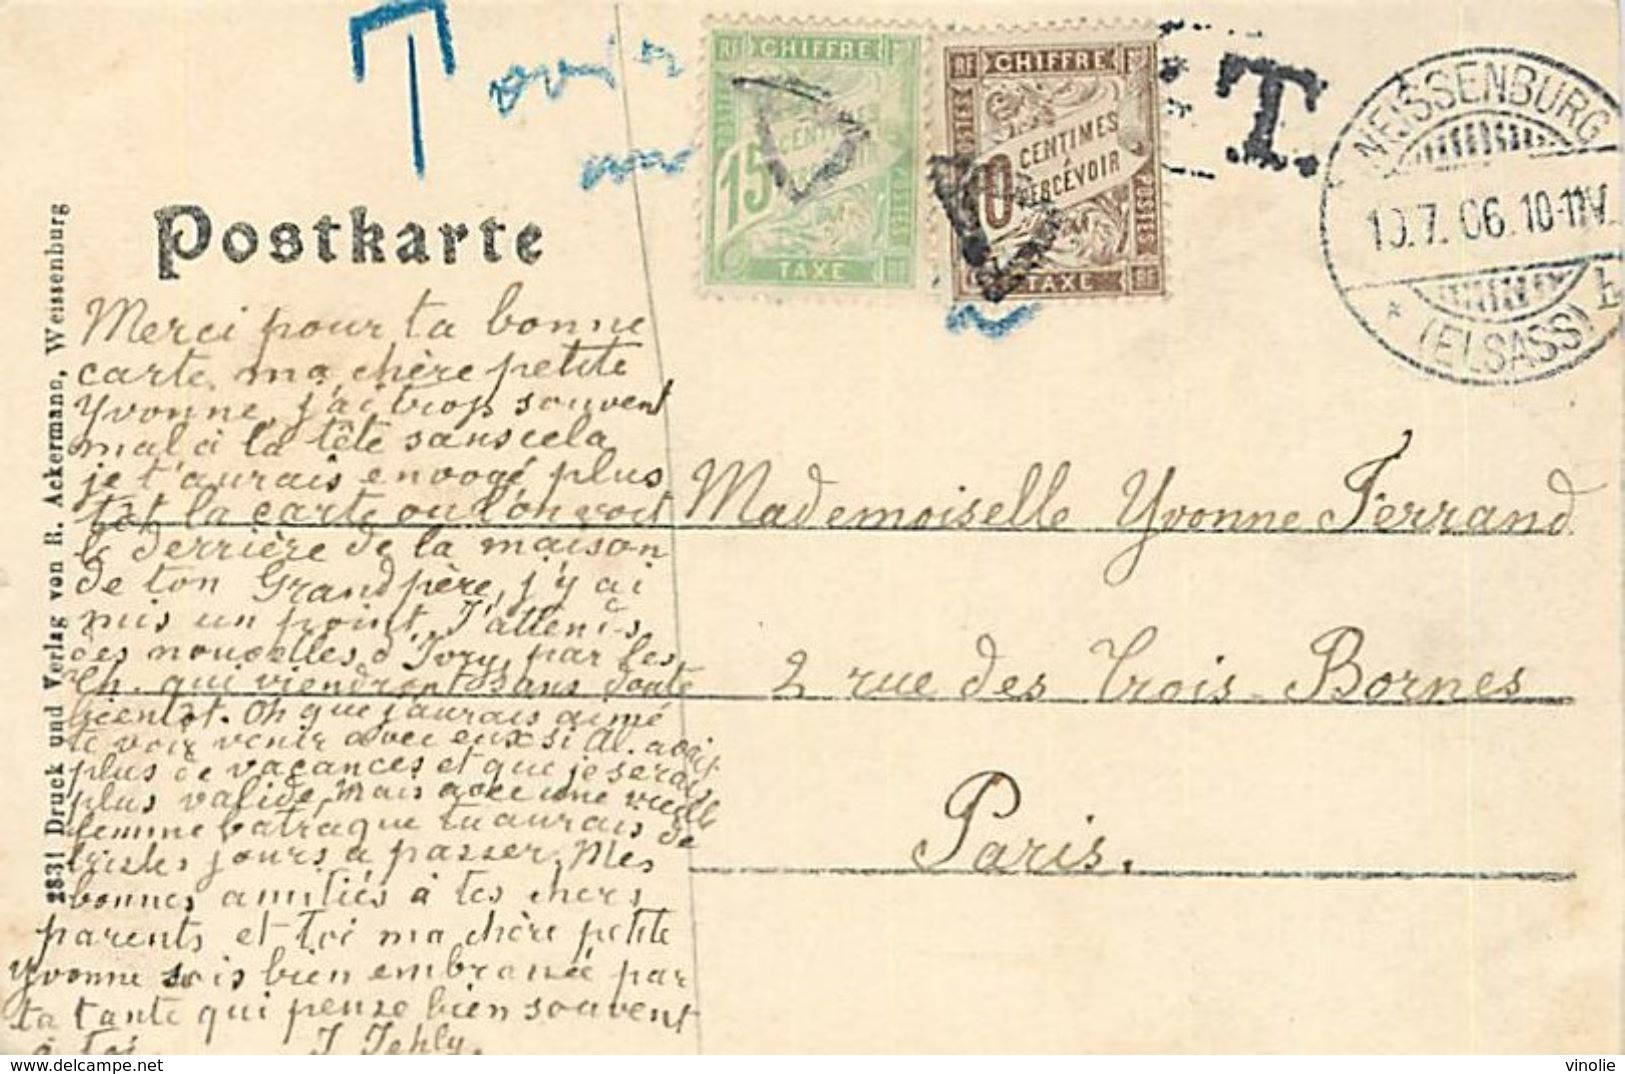 T
RF CHIFFRE
POSTES
15 CENTIMES
TAXE
RF
RF CHIFFRE
POSTES
10 CENTIMES
PERCEVOIR
POSTES
TAXE
RF
T.
WEISSENBURG
10.7.06.10-11V.
* (ELSASS) b
Postkarte
2831 Druck und Verlag von R. Ackermann, Weissenburg
Merci pour ta bonne
carte, ma chère petite
Yvonne, j'ai trop souvent
mal à la tête sans cela
je t'aurais envoyé plus
tôt la carte ou l'on voit
le derrière de la maison
de ton Grandpère, j'y ai
mis un point. J'attends
des nouvelles d'Ivry, par les
Ch. qui viendront sans doute
bientôt. Oh que j'aurais aimé
te voir venir avec eux si Al. avait
plus de vacances et que je serais
plus valide, mais avec une vieille
femme patraque tu aurais de
tristes jours à passer. Mes
bonnes amitiés à tes chers
parents et toi ma chère petite
Yvonne sois bien embrassée par
ta tante qui pense bien souvent
à toi J Jehly.
Mademoiselle Yvonne Ferrand
2 rue des Trois-Bornes
Paris.
vinolie